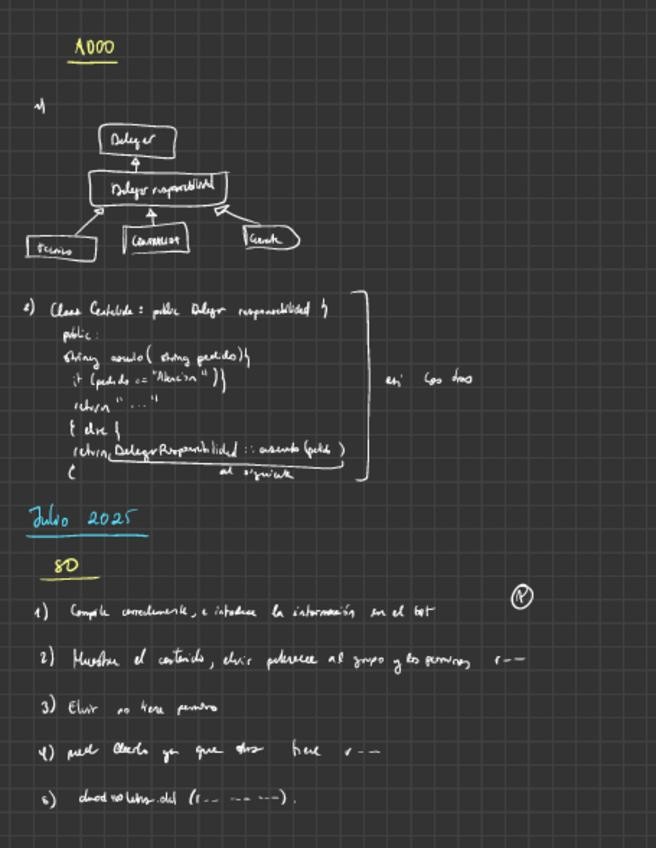 ADOO
1)
Delegar
Delegar responsabilidad
Tecnico
Gerente
2) Class Centralista : public Delegar responsabilidad {
public:
string asunto( string pedido){
if (pedido == "Atencion"){
return "..."
} else {
return DelegarResponsabilidad :: asunto (pedido)
al siguiente
así los tres
Julio 2025
SO
1) Compila correctamente, e introduce la información en el txt
2) Muestra el contenido, elvir pertenece al grupo y los permisos r--
3) Elvir no tiene permiso
4) puede leerlo ya que otros tiene r--
5) chmod 400 (r-- --- ---).